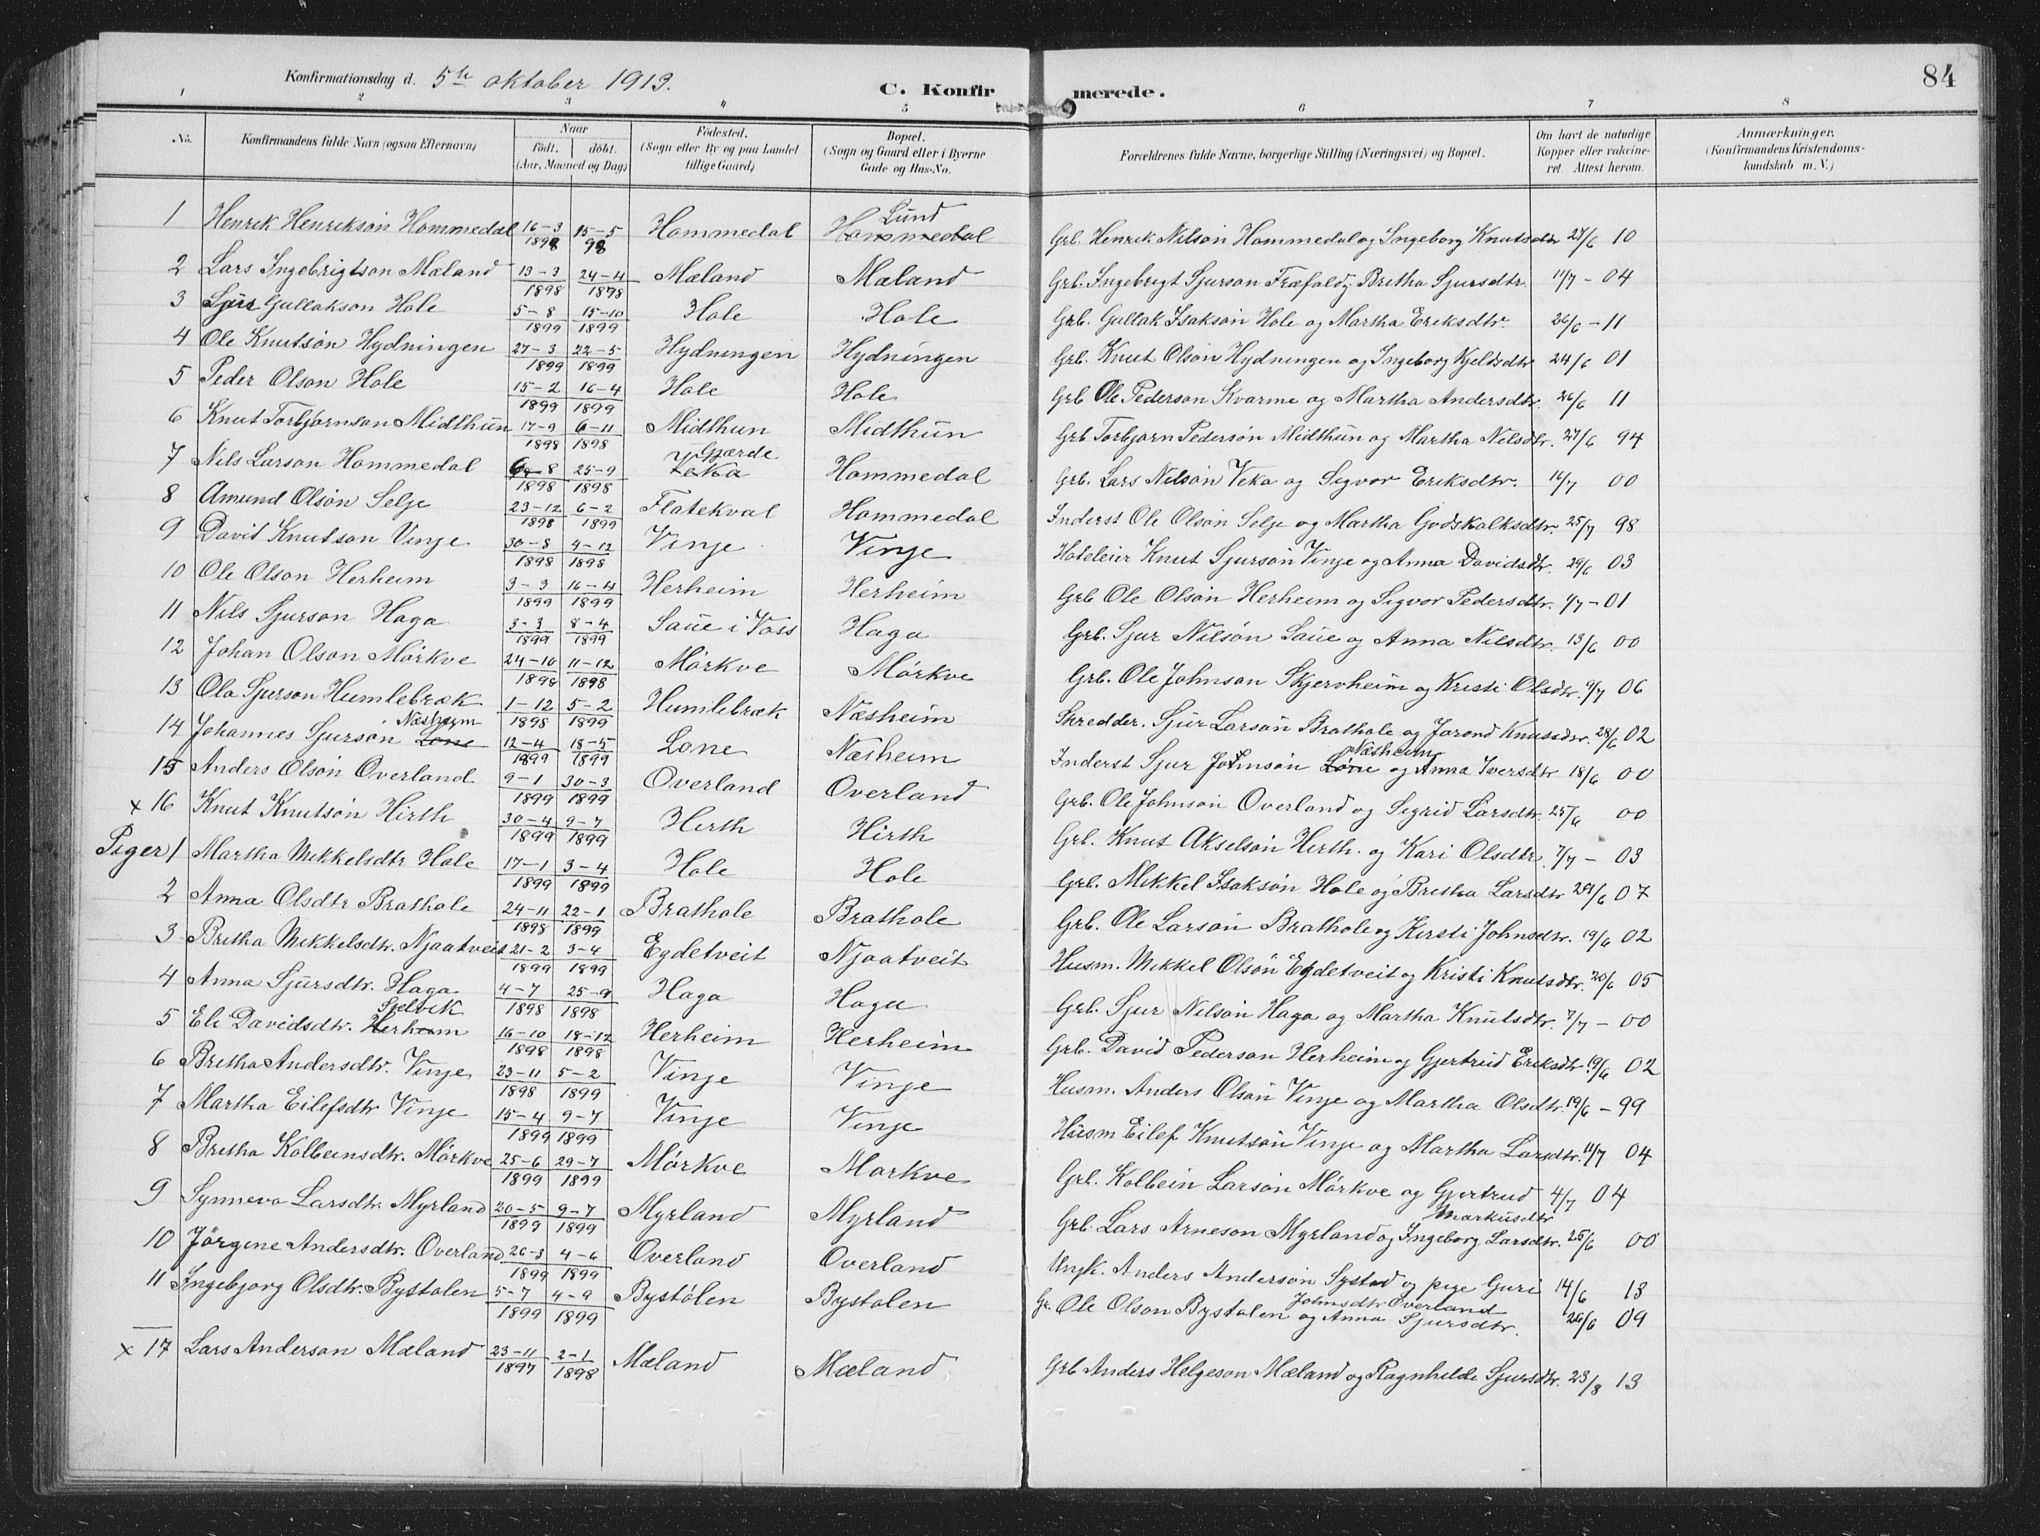 84
Konfirmationsdag d. 5te oktober 1913.
C. Konfirmerede.
1 2 3 4 5 6 7 8
No. Konfirmandens fulde Navn (ogsaa Efternavn) Naar født. døbt. (Aar, Maaned og Dag) Fødested. (Sogn eller By og paa Landet tillige Gaard) Bopæl. (Sogn og Gaard eller i Byerne Gade og Hus-No. Forældrenes fulde Navne, borgerlige Stilling (Næringsvei) og Bopæl. Om havt de naturlige Kopper eller vakcineret. Attest herom. Anmærkninger. (Konfirmandens Kristendomskundskab m. V.)
1 Henrik Henriksøn Hommedal 16-3 1898 15-5 98 Hommedal Hommedal Lund Grb. Henrik Nilsøn Hommedal og Ingeborg Knutsdtr 27/6 10
2 Lars Ingebrigtson Mæland 13-3 1898 24-4 1898 Mæland Mæland Grb. Ingebrigt Sjurson Fræfald og Bretha Sjursdtr 11/7 - 04
3 Sjur Gullakson Hole 5-8 1899 15-10 1899 Hole Hole Grb. Gullak Isakson Hole og Martha Eriksdtr. 26/6 - 11
4 Ole Knutsøn Hydningen 27-3 1899 22-5 1899 Hydningen Hydningen Grb. Knut Olsøn Hydningen og Ingeborg Kjelsdtr 24/6 01
5 Peder Olson Hole 15-2 1899 16-4 1899 Hole Hole Grb Ole Pederson Kvarme og Martha Andersdtr. 26/6 11
6 Knut Torbjørnson Midthun 17-9 1898 6-11 1898 Midthun Midthun Grb Torbjørn Pedersøn Midthun og Martha Nilsdtr. 27/6 94
7 Nils Larson Hommedal 6-8 1898 25-9 1898 Veka Gjærde Hommedal Grb. Lars Nilsøn Veka og Sigvor Eriksdtr. 14/7 00
8 Amund Olsøn Selje 23-12 1898 6-2 1899 Flatekval Hommedal Inderst Ole Olsøn Selje og Martha Godskalksdtr. 25/7 98
9 Davit Knutson Vinje 30-8 1898 4-12 1898 Vinje Vinje Hoteleier Knut Sjursøn Vinje og Anna Davidsdtr. 29/6 03
10 Ole Olson Herheim 3-3 1899 16-4 1899 Herheim Herheim Grb Ole Olsøn Herheim og Sigvor Pedersdtr. 1/7 - 01
11 Nils Sjurson Haga 3-3 1899 8-4 1899 Saue i Voss Haga Grb. Sjur Nilsøn Saue og Anna Nilsdtr. 13/6 00
12 Johan Olson Mørkve 24-10 1898 11-12 1898 Mørkve Mørkve Grb. Ole Johnson Skjervheim og Kristi Olsdtr. 9/7 06
13 Ola Sjurson Humlebræk 1-12 1898 5-2 1899 Humlebræk Næsheim Skredder. Sjur Larsøn Brathole og Jorond Knutsdtr. 28/6 02
14 Johannes Sjursøn Lone Næsheim 12-4 1899 18-5 1899 Lone Næsheim Inderst Sjur Johnsøn Lone Næsheim og Anna Iversdtr 18/6 00
15 Anders Olson Overland 9-1 1899 30-3 1899 Overland Overland Grb. Ole Johnson Overland og Sigrid Larsdtr. 25/6 00
x 16 Knut Knutsøn Hirth 30-4 1899 9-7 1899 Hirth Hirth Grb. Knut Akselsøn Hirth. og Kari Olsdtr. 7/7 - 03
Piger 1 Martha Mikkelsdtr Hole 17-1 1899 3-4 1899 Hole Hole Grb. Mikkel Isaksøn Hole og Bretha Larsdtr 29/6 07
2 Anna Olsdtr Brathole 24-11 1898 22-1 1899 Brathole Brathole Grb. Ole Larsøn Brathole og Kersti Johnsdtr. 19/6 02
3 Bretha Mikkelsdtr. Njaatveit 21-2 1899 3-4 1899 Egdetveit Njaatveit Husm. Mikkel Olsøn Egdetveit og Kristi Knutsdtr. 20/6 05
4 Anna Sjursdtr. Haga 4-7 1898 25-9 1898 Haga Haga Grb. Sjur Nilsøn Haga og Martha Knutsdtr. 7/7 - 00
5 Eli Davidsdtr. Herheim Selvik 16-10 1898 18-12 1898 Herheim Herheim Grb. David Pederson Herheim og Gjertrud Eriksdtr 19/6 02
6 Bretha Andersdtr. Vinje 23-11 1898 5-2 1899 Vinje Vinje Husm. Anders Olsøn Vinje og Martha Olsdtr. 19/6 - 99
7 Martha Eilefsdtr Vinje 15-4 1899 9-7 1899 Vinje Vinje Husm Eilef Knutsøn Vinje og Martha Larsdtr. 11/7 04
8 Bretha Kolbeinsdtr. Mørkve 25-6 1899 29-7 1899 Mørkve Markve Grb. Kolbein Larsøn Mørkve og Gjertrud Markusdtr 4/7 04
9 Synneva Larsdtr. Myrland 20-5 1899 9-7 1899 Myrland Myrland Grb. Lars Arneson Myrland og Ingeborg Larsdtr. 25/6 00
10 Jørgine Andersdtr. Overland 26-3 1899 4-6 1899 Overland Overland Ungk. Anders Andersøn Systad og pige Guri Johnsdtr Overland 14/6 13
11 Ingebjørg Olsdtr. Bystølen 5-7 1899 4-9 1899 Bystølen Bystølen Gr. Ole Olson Bystølen og Anna Sjursdtr. 26/6 09
x 17 Lars Anderson Mæland 23-11 1897 2-1 1898 Mæland Mæland Grb Anders Helgeson Mæland og Ragnhilde Sjursdtr. 23/8 13